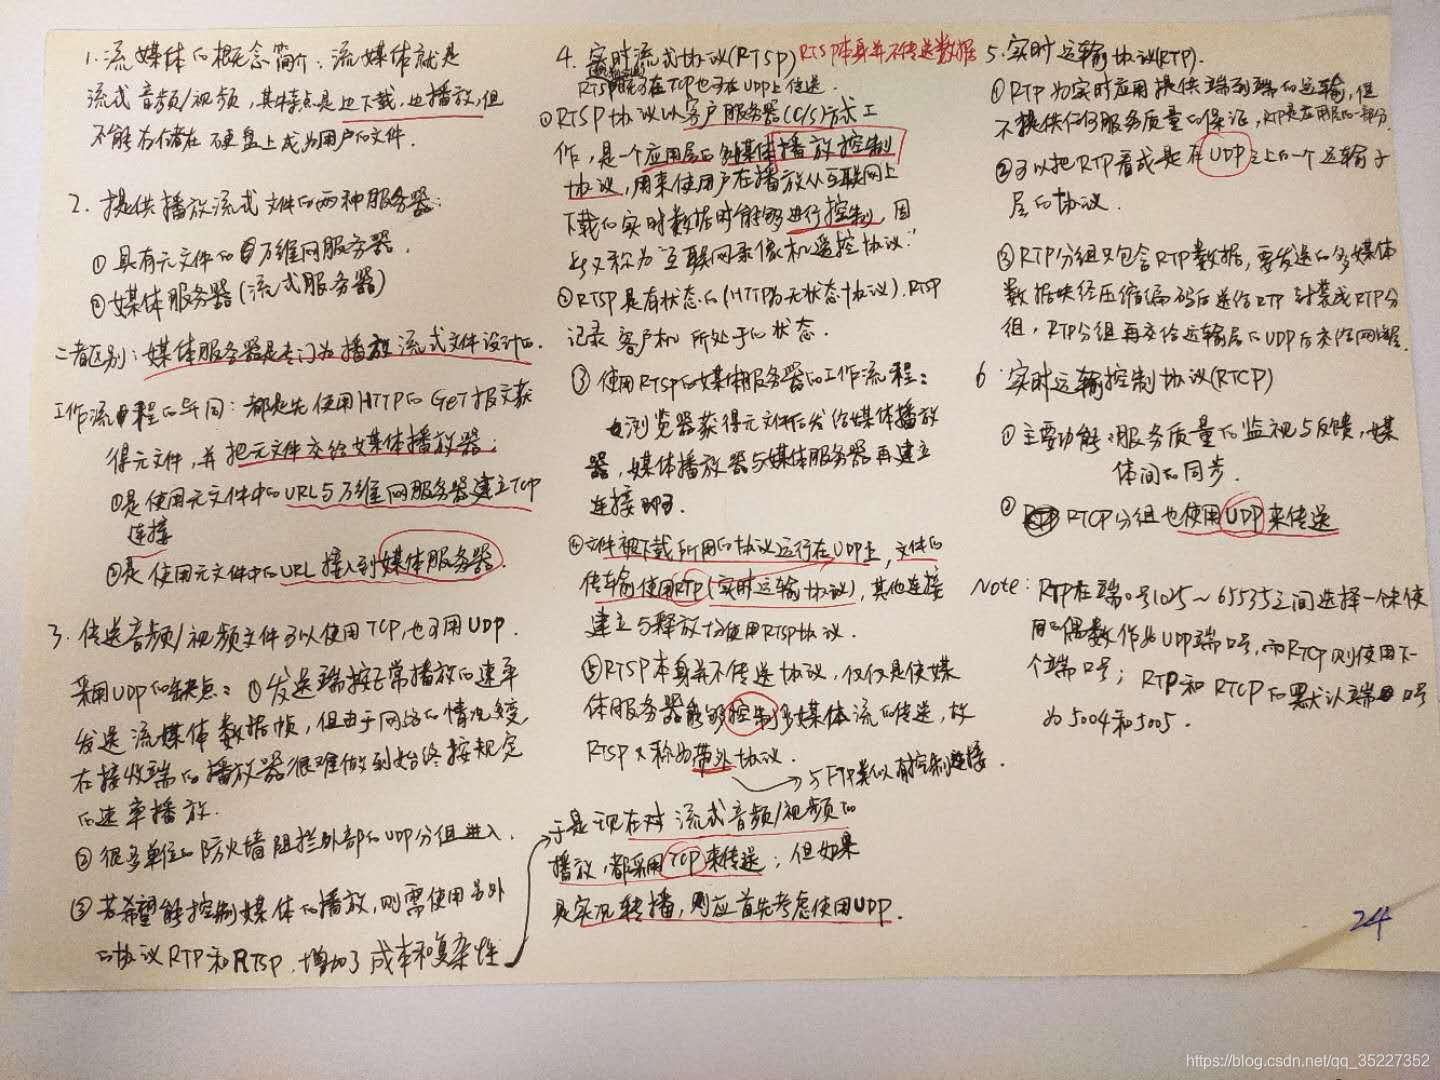 1.流媒体的概念简介：流媒体就是
流式音频/视频，其特点是边下载，边播放，但
不能存储在硬盘上成为用户的文件.
2.提供播放流式文件的两种服务器：
①具有元文件的万维网服务器.
②媒体服务器(流式服务器)
二者区别：媒体服务器是专门为播放流式文件设计的.
工作流程的异同：都是先使用HTTP的GET报文获
得元文件，并把元文件交给媒体播放器；
①是使用元文件中的URL与万维网服务器建立TCP
连接
②是使用元文件中的URL接入到媒体服务器.
3.传送音频/视频文件可以使用TCP,也可用UDP.
采用UDP的缺点：①发送端按正常播放的速率
发送流媒体数据帧，但由于网络的情况多变
在接收端的播放器很难做到始终按规定
的速率播放.
②很多单位的防火墙阻拦外部的UDP分组进入.
③若希望能控制媒体的播放，则需使用另外
的协议RTP和RTSP，增加了成本和复杂性
4.实时流式协议(RTSP) RTSP本身并不传送数据
RTSP既可在TCP也可在UDP上传送
①RTSP协议以客户服务器(C/S)方式工
作，是一个应用层的多媒体播放控制
协议，用来使用户在播放从互联网上
下载的实时数据时能够进行控制，因
此又称为"互联网录像机遥控协议."
②RTSP是有状态的(HTTP为无状态协议).RTSP
记录客户机所处于的状态.
③使用RTSP的媒体服务器的工作流程：
浏览器获得元文件后发给媒体播放
器，媒体播放器与媒体服务器再建立
连接即可.
④文件被下载所用的协议运行在UDP上，文件的
传输使用RTP(实时运输协议)，其他连接
建立与释放仍使用RTSP协议.
⑤RTSP本身并不传送协议，仅仅是使媒
体服务器能够控制多媒体流的传送，故
RTSP又称为带外协议.
与FTP类似有控制连接.
于是现在对流式音频/视频的
播放，都采用TCP来传送；但如果
是实况转播，则应首先考虑使用UDP.
5.实时运输协议(RTP).
①RTP为实时应用提供端到端的运输，但
不提供任何服务质量的保证，RTP是应用层的一部分.
②可以把RTP看成是在UDP之上的一个运输子
层的协议.
③RTP分组只包含RTP数据，要发送的多媒体
数据块经压缩编码后送给RTP封装成RTP分
组，RTP分组再交给运输层的UDP后交给网络层.
6.实时运输控制协议(RTCP)
①主要功能：服务质量的监视与反馈，媒
体间的同步.
② RTCP分组也使用UDP来传送
Note：RTP在端口号1025～65535之间选择一个未使
用的偶数作为UDP端口号，而RTCP则使用下一
个端口号；RTP和RTCP的默认端口号
为5004和5005.
24
https://blog.csdn.net/qq_35227352